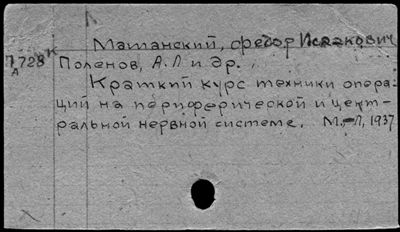 Л
Матанский, Федор Исаакович
1728 к Поленов, А.Л и др.
А
Краткий курс техники опера-
ций на периферической и цент-
ральной нервной системе. М.-Л, 1937